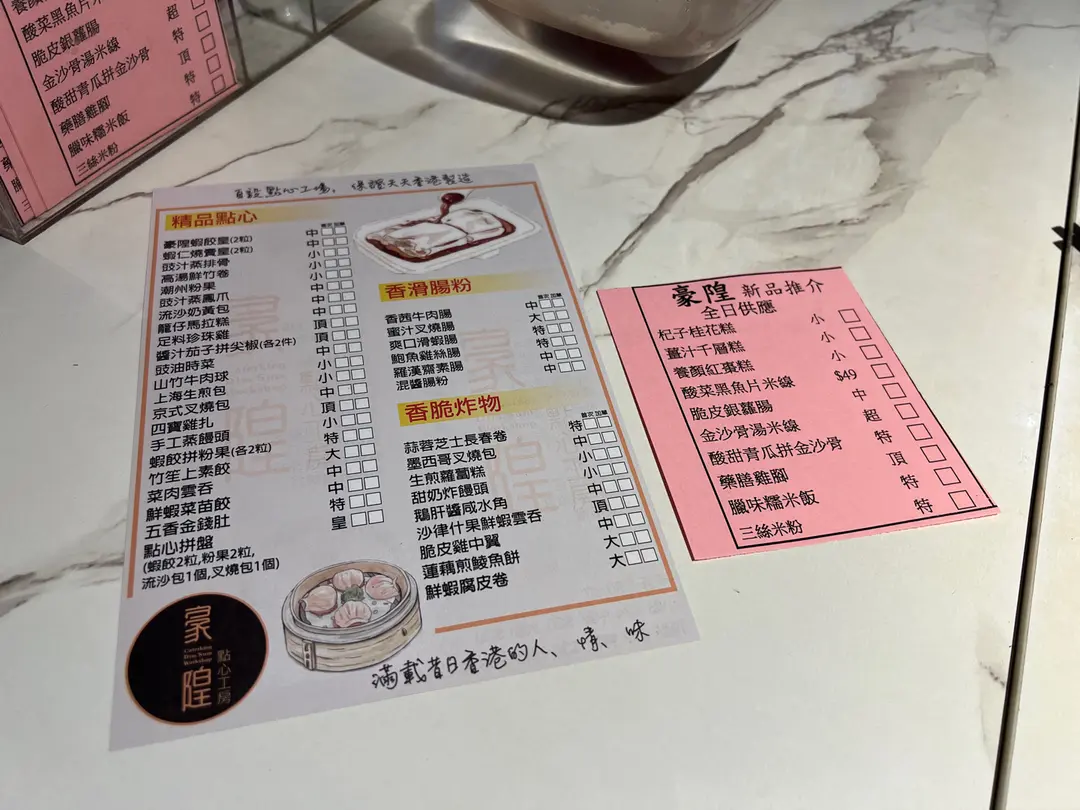 養顏
酸菜黑魚片米
脆皮銀蘿腸
金沙骨湯米線
酸甜青瓜拼金沙骨
藥膳雞腳
臘味糯米飯
三絲米粉
超
特
頂
特
特
自設點心工場, 保證天天香港製造
精品點心
首次 加單
豪隍蝦餃皇(2粒) 中
蝦仁燒賣皇(2粒) 中
豉汁蒸排骨 小
高湯鮮竹卷 小
潮州粉果 小
豉汁蒸鳳爪 中
流沙奶黃包 中
籠仔馬拉糕 中
足料珍珠雞 頂
醬汁茄子拼尖椒(各2件) 頂
豉油時菜 中
山竹牛肉球 小
上海生煎包 小
京式叉燒包 中
四寶雞扎 頂
手工蒸饅頭 小
蝦餃拼粉果(各2粒) 特
竹笙上素餃 大
菜肉雲吞 中
鮮蝦菜苗餃 中
五香金錢肚 特
點心拼盤 皇
(蝦餃2粒,粉果2粒,
流沙包1個,叉燒包1個)
香滑腸粉
首次 加單
香茜牛肉腸 中
蜜汁叉燒腸 大
爽口滑蝦腸 特
鮑魚雞絲腸 特
羅漢齋素腸 中
混醬腸粉 中
香脆炸物
首次 加單
蒜蓉芝士長春卷 特
墨西哥叉燒包 中
生煎蘿蔔糕 小
甜奶炸饅頭 小
鵝肝醬咸水角 中
沙律什果鮮蝦雲吞 頂
脆皮雞中翼 中
蓮藕煎鯪魚餅 大
鮮蝦腐皮卷 大
豪隍
點心工房
滿載昔日香港的人、情、味
豪隍 新品推介
全日供應
杞子桂花糕 小
薑汁千層糕 小
養顏紅棗糕 小
酸菜黑魚片米線 $49
脆皮銀蘿腸 中
金沙骨湯米線 超
酸甜青瓜拼金沙骨 特
藥膳雞腳 頂
臘味糯米飯 特
三絲米粉 特